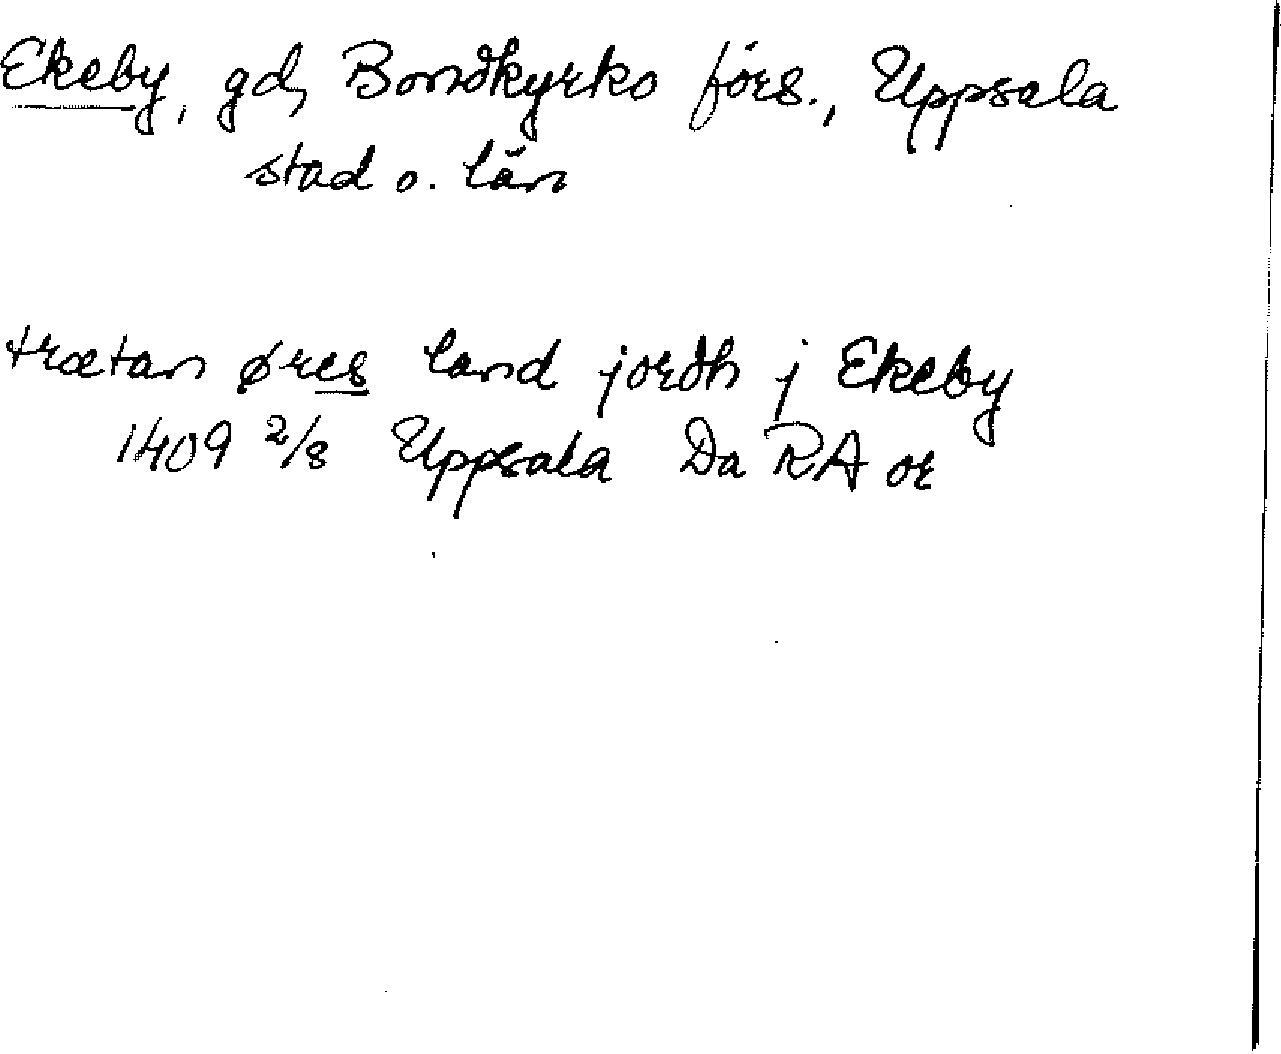 Ekeby, gd, Bondkyrko förs., Uppsala
stad o. län
trætan øres land jordh j Ekeby
1409 2/8 Uppsala Da RA or